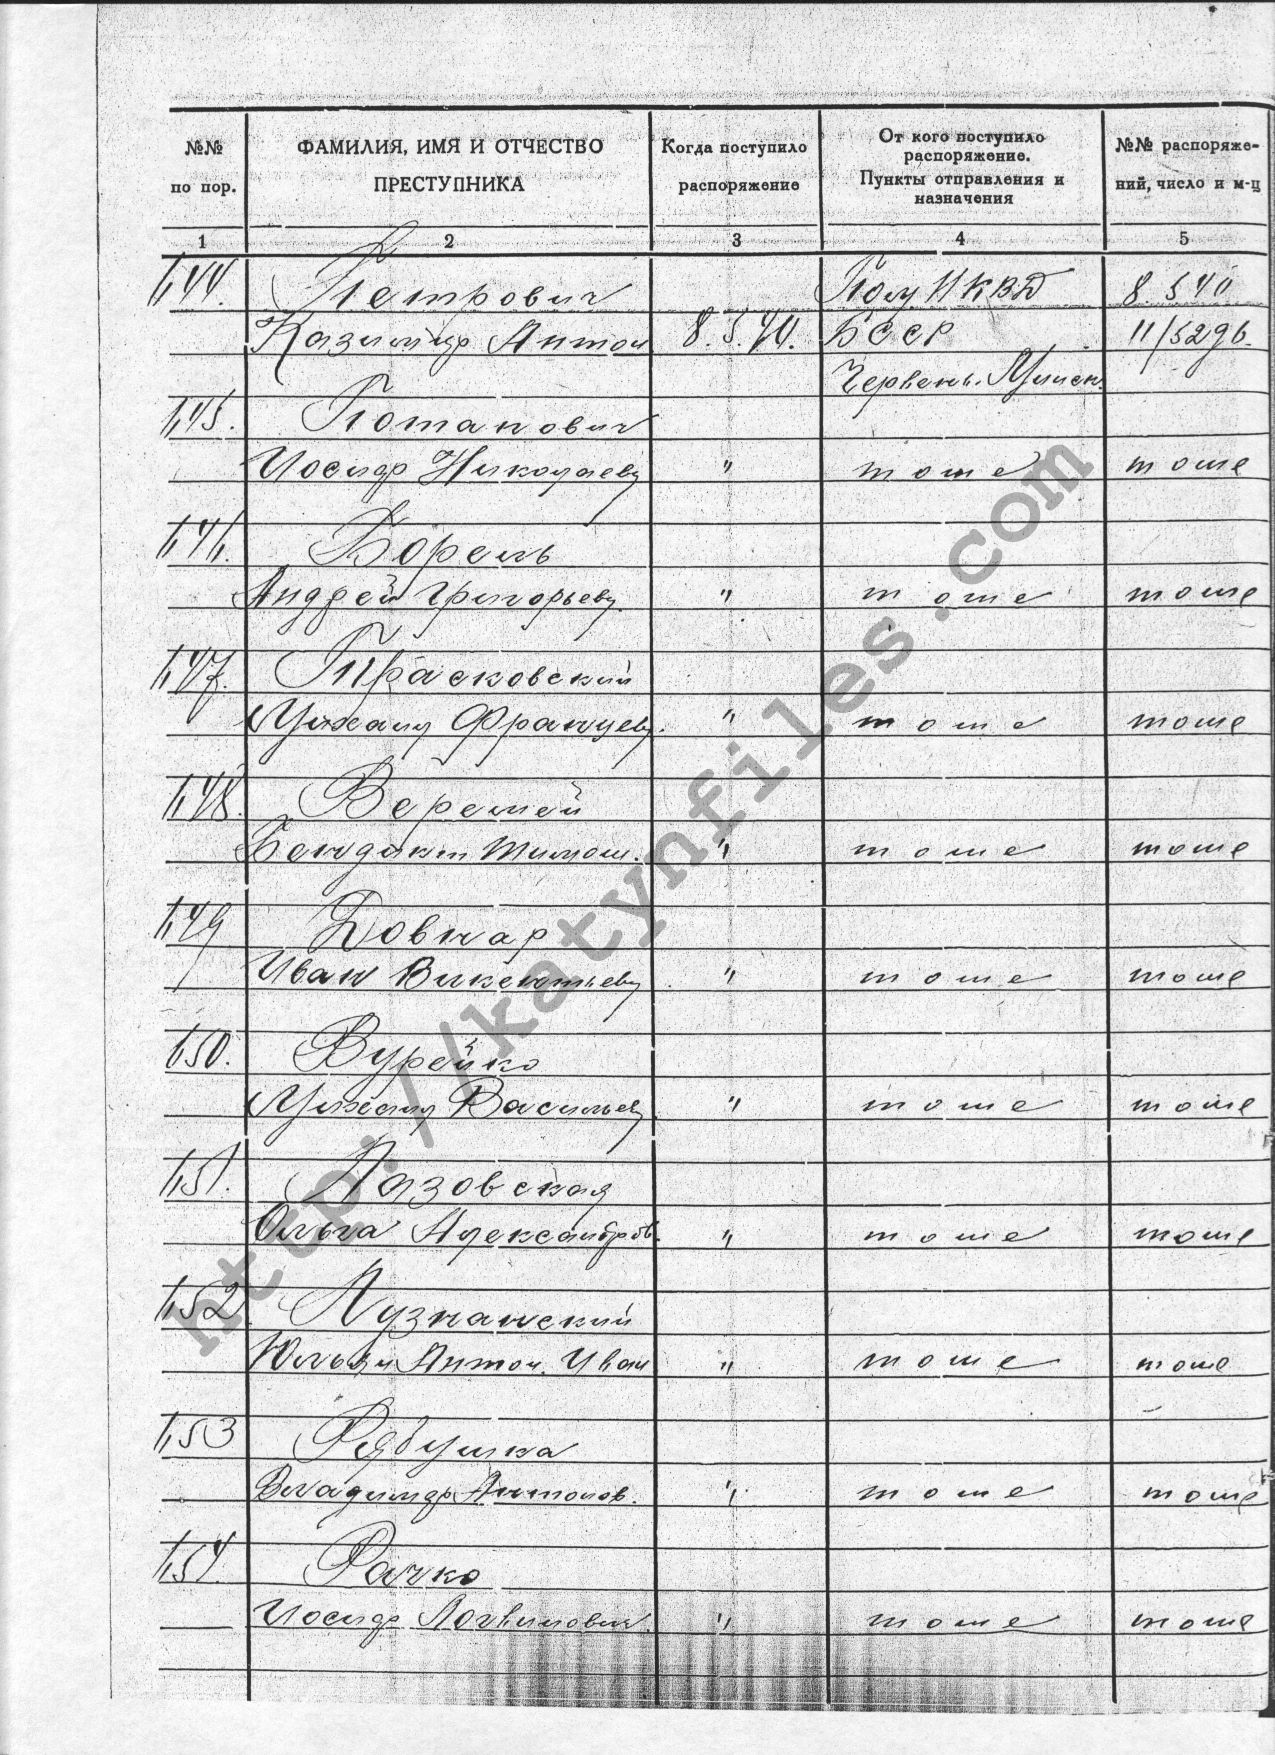 №№ по пор.
ФАМИЛИЯ, ИМЯ И ОТЧЕСТВО ПРЕСТУПНИКА
Когда поступило распоряжение
От кого поступило распоряжение. Пункты отправления и назначения
№№ распоряжений, число и м-ц
1 2 3 4 5
144. Петрович НКВД 8.5.40
Казимир Антон 8.5.40. БССР 11/5296.
Червень. Минск.
145. Потапович
Иосиф Николаев " тоже тоже
146. Король
Андрей Григорьев. " тоже тоже
147. Трасковский
Михаил Францев. " тоже тоже
148. Веремей
Бендикт Тимош. " тоже тоже
149 Довнар
Иван Викентьев " тоже тоже
150. Вурейко
Михаил Васильев " тоже тоже
151. Лазовская
Ольга Александров. " тоже тоже
152 Лузнанский
Юльян Антон. Иван " тоже тоже
153 Рябушка
Владимир Антонов. " тоже тоже
154. Рачко
Иосиф Логвинович. " тоже тоже
http://katynfiles.com